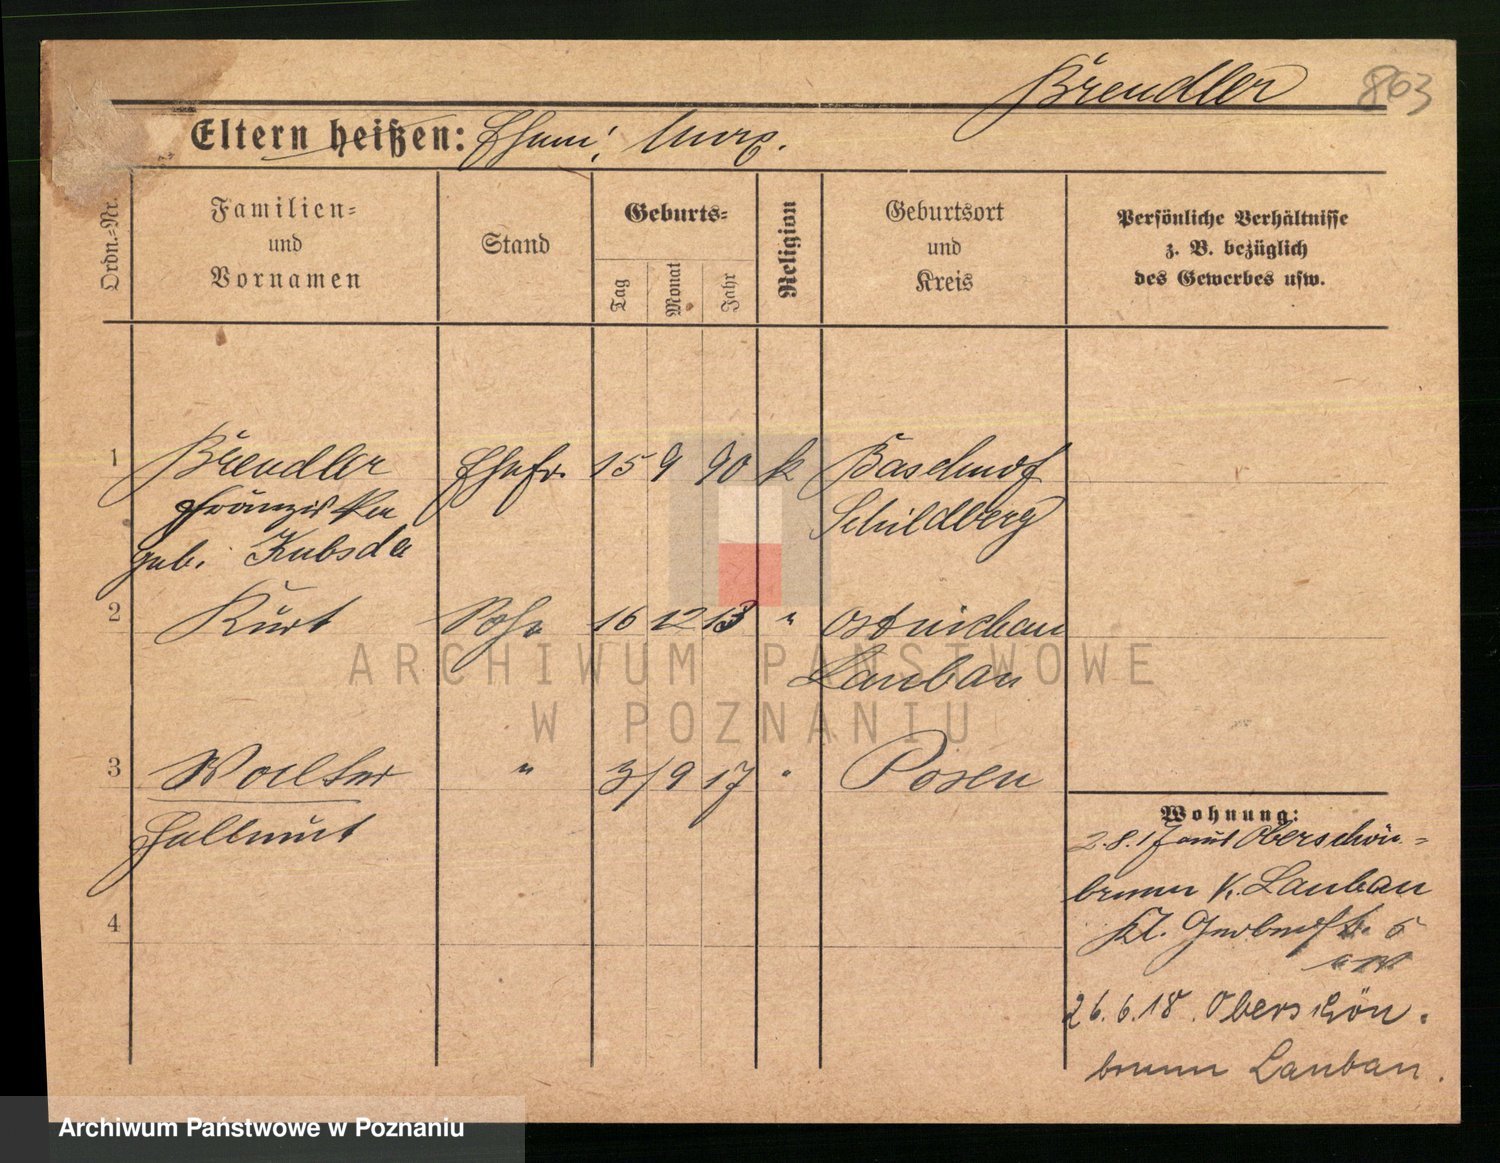 Brendler 863
Eltern heißen: Ehem: Max.
Ordn.-Nr.
Familien-
und
Vornamen
Stand
Geburts-
Tag
Monat
Jahr
Religion
Geburtsort
und
Kreis
Persönliche Verhältnisse
z. B. bezüglich
des Gewerbes usw.
1 Brendler Ehefr. 15 9 90 k
Franziska Schildberg
geb. Kubsda
2 Kurt Sohn 16 12 13 "
Lauban
3 Walter " 3/ 9 17 " Posen
Hellmut
4
Wohnung:
2.8.17 aus Oberschön-
brunn K. Lauban
Kl. Gerberstr. 5
26.6.18. Oberschön.
brunn Lauban.
ARCHIWUM PAŃSTWOWE
W POZNANIU
Archiwum Państwowe w Poznaniu